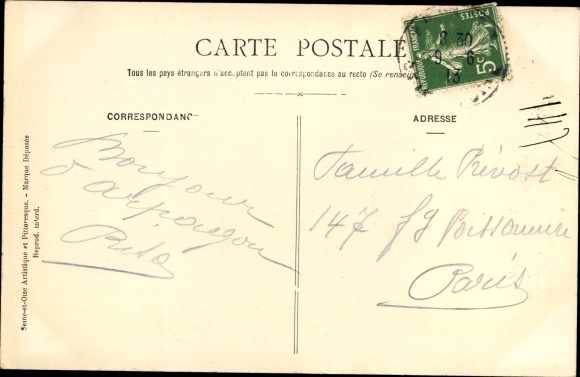 CARTE POSTALE
Tous les pays étrangers n'acceptent pas la correspondance au recto (Se rensei
CORRESPONDANC
ADRESSE
Bonjour
d'arpajon
Rita
Famille Prévost
147 fg Poissonnière
Paris
Seine-et-Oise Artistique et Pittoresque. - Marque Déposée
Reprod. interd.
REPUBLIQUE FRANÇAISE
5c
8 30
9 - 6
13